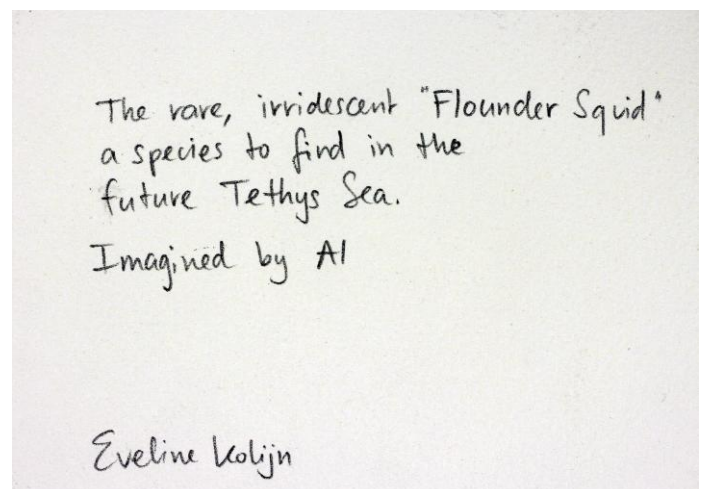 The rare, irridescent "Flounder Squid"
a species to find in the
future Tethys Sea.
Imagined by AI
Eveline Kolijn